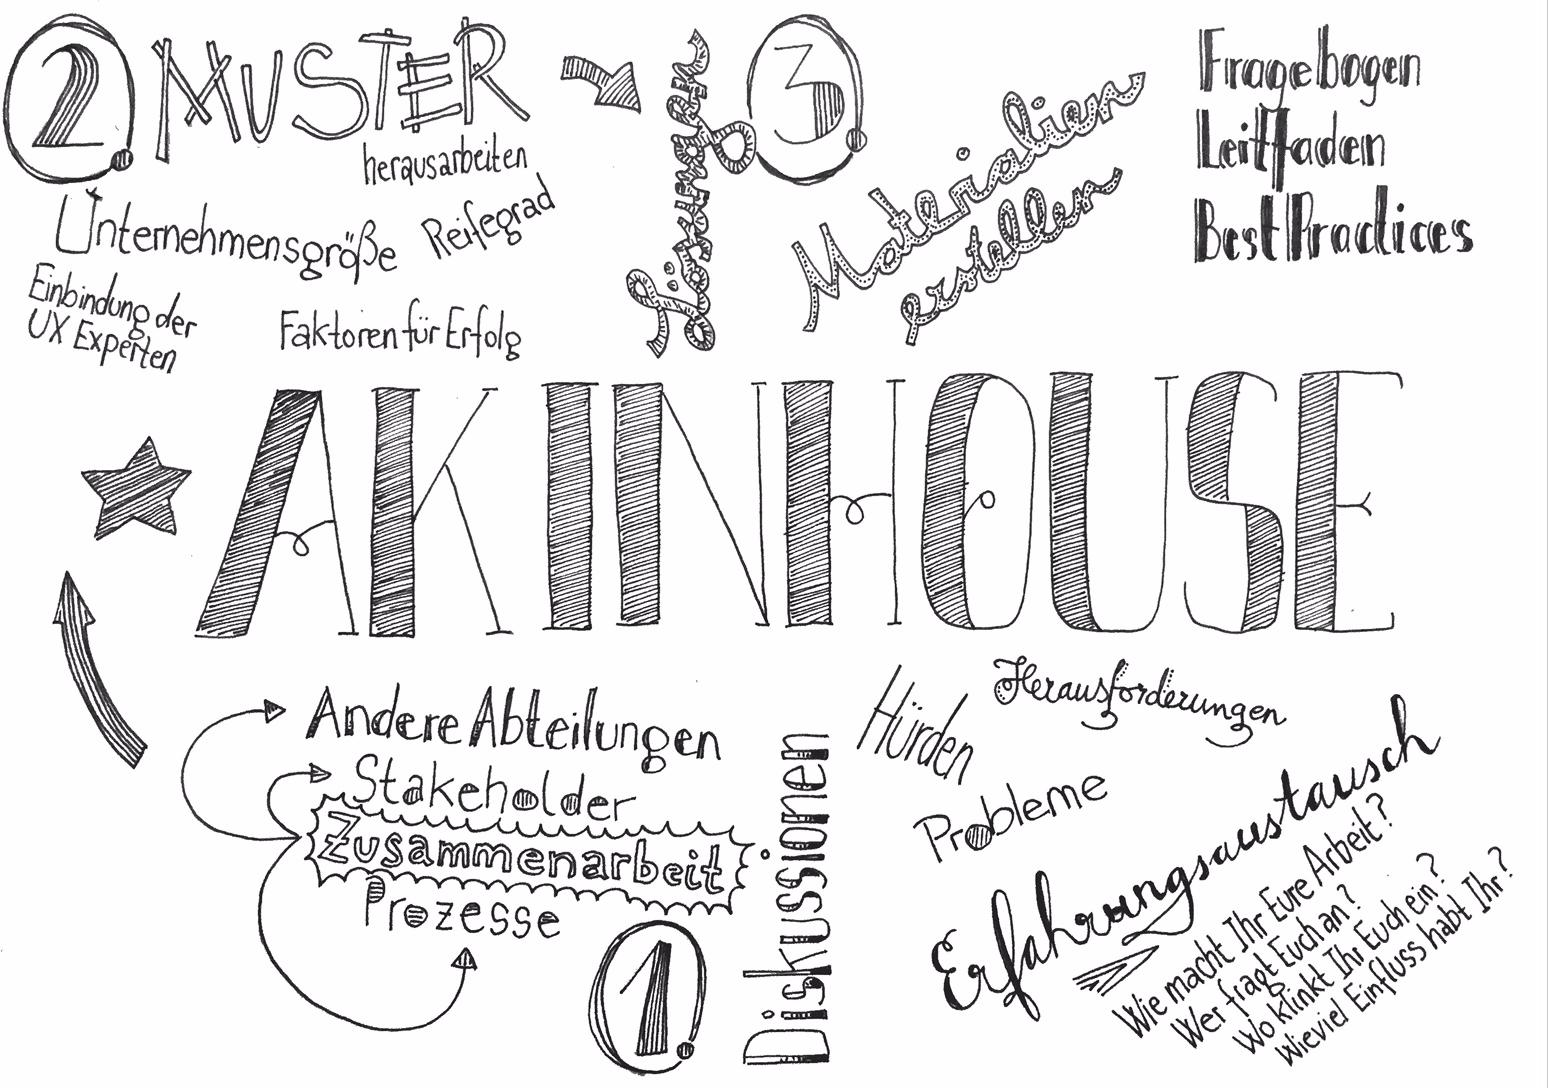 2.
MUSTER
herausarbeiten
Unternehmensgröße
Reifegrad
Einbindung der
UX Experten
Faktoren für Erfolg
Lösungen
3.
Materialien
erstellen
Fragebogen
Leitfaden
Best Practices
AK INHOUSE
Andere Abteilungen
Stakeholder
Zusammenarbeit
Prozesse
1.
Diskussionen
Hürden
Herausforderungen
Probleme
Erfahrungsaustausch
Wie macht Ihr Eure Arbeit?
Wer fragt Euch an?
Wo klinkt Ihr Euch ein?
Wieviel Einfluss habt Ihr?